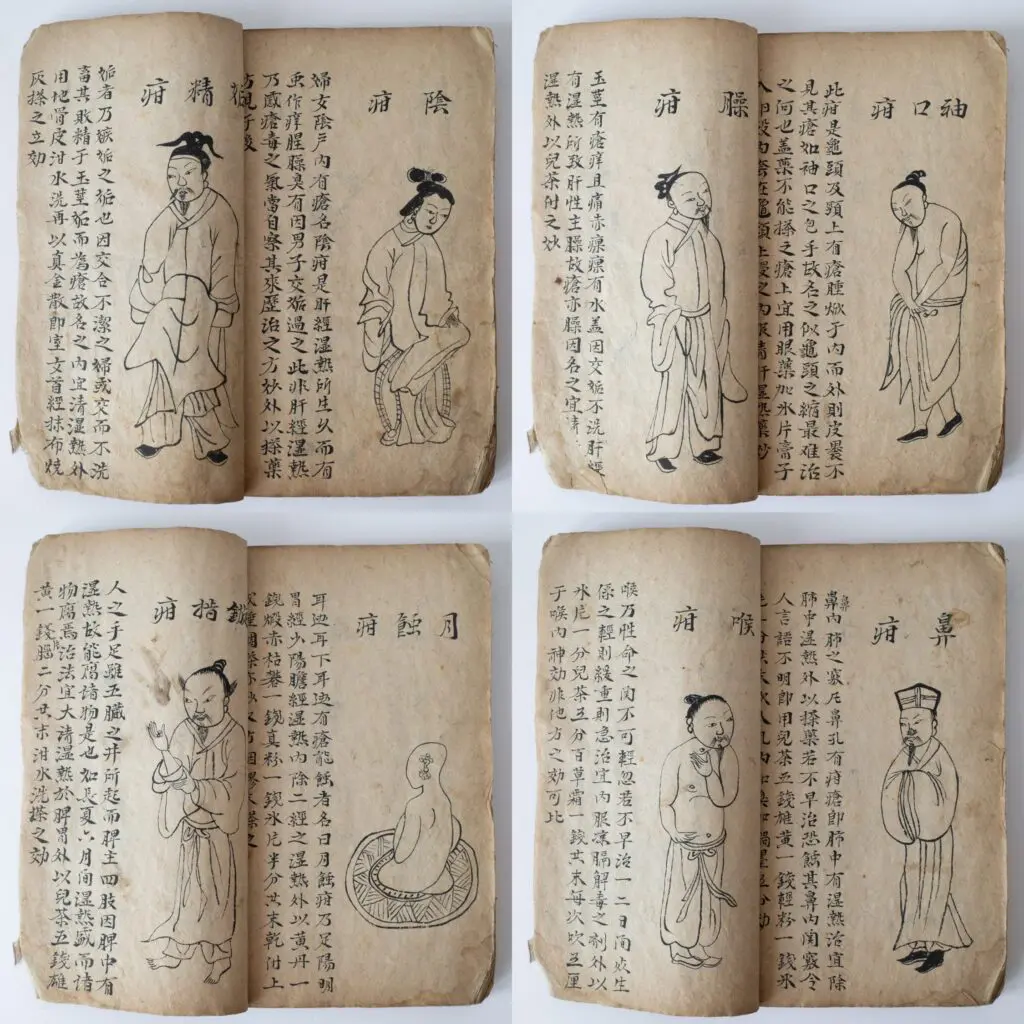 陰疳
婦女陰戶内有瘡名陰疳是肝經溼熱所生久而有
虫作痒腥臊臭有因男子交垢過之此非肝經溼熱
乃感瘡毒之氣當自察其來歷治之方妙外以搽藥
精疳
垢者乃嫉垢之垢也因交合不潔之婦或交而不洗
畜其敗精于玉莖垢而為瘡故名之内宜清溼熱外
用地骨皮泔水洗再以真金散即室女首經抹布燒
灰搽之立効
袖口疳
此疳是龜頭及頸上有瘡腫焮于内而外則皮裹不
見其瘡如袖口之包手故名之似龜頭之縮最難治
之何也盖藥不能搽之瘡上宜用眼藥加氷片膏子
臊疳
玉莖有瘡痒且痛赤瘰瘰有水盖因交垢不洗肝經
有溼熱所致肝性主臊故瘡亦臊因名之宜清
溼熱外以兒茶付之妙
月蝕疳
耳边耳下耳边有瘡能蝕者名曰月蝕疳乃足陽明
胃經少陽膽經溼熱内除二經之溼熱外以黄丹一
錢煅赤枯礬一錢真粉一錢氷片半分共末乾付上
指疳
人之手足雖五臟之井所起而脾主四肢因脾中有
溼熱故能腐諸物是也如長夏六月间溼熱盛而诸
物腐焉治法宜大清溼熱於脾胃外以兒茶五錢雄
黄一錢腦二分共末泔水洗搽之効
鼻疳
鼻内肺之竅凡鼻孔有疳瘡即肺中有溼熱治宜除
肺中溼熱外以搽藥若不早治恐蝕其鼻内関竅令
人言語不明即用兒茶五錢雄黄一錢輕粉一錢氷
喉疳
喉乃性命之関不可輕忽若不早治一二日间死生
係之輕則緩重則急治宜内服凉膈解毒之剂外以
氷片一分兒茶五分百草霜一錢共末每次吹五厘
于喉内神効非他方之効可比